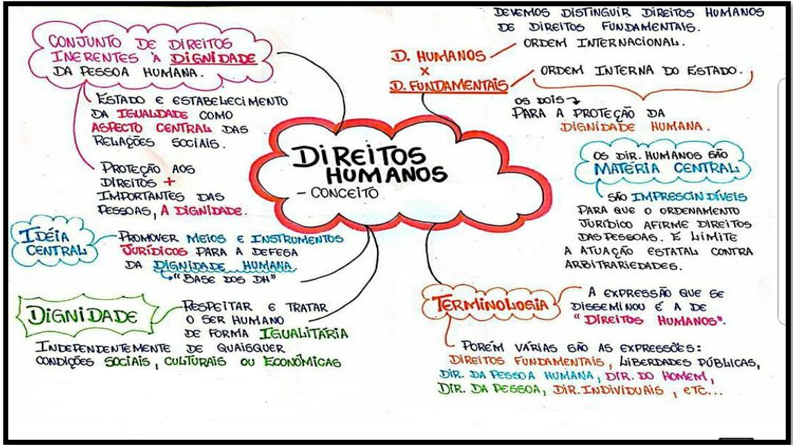 DIREITOS
HUMANOS
- CONCEITO
CONJUNTO DE DIREITOS
INERENTES À DIGNIDADE
DA PESSOA HUMANA.
ESTADO E ESTABELECIMENTO
DA IGUALDADE COMO
ASPECTO CENTRAL DAS
RELAÇÕES SOCIAIS.
PROTEÇÃO AOS
DIREITOS +
IMPORTANTES DAS
PESSOAS, A DIGNIDADE.
IDÉIA
CENTRAL
PROMOVER MEIOS E INSTRUMENTOS
JURÍDICOS PARA A DEFESA
DA DIGNIDADE HUMANA
"BASE DOS DH"
DIGNIDADE
RESPEITAR E TRATAR
O SER HUMANO
DE FORMA IGUALITÁRIA
INDEPENDENTEMENTE DE QUAISQUER
CONDIÇÕES SOCIAIS, CULTURAIS OU ECONÔMICAS
DEVEMOS DISTINGUIR DIREITOS HUMANOS
DE DIREITOS FUNDAMENTAIS.
D. HUMANOS
X
D. FUNDAMENTAIS
ORDEM INTERNACIONAL.
ORDEM INTERNA DO ESTADO.
OS DOIS
PARA A PROTEÇÃO DA
DIGNIDADE HUMANA.
OS DIR. HUMANOS SÃO
MATÉRIA CENTRAL
SÃO IMPRESCINDÍVEIS
PARA QUE O ORDENAMENTO
JURÍDICO AFIRME DIREITOS
DAS PESSOAS. E LIMITE
A ATUAÇÃO ESTATAL CONTRA
ARBITRARIEDADES.
TERMINOLOGIA
A EXPRESSÃO QUE SE
DISSEMINOU É A DE
"DIREITOS HUMANOS".
PORÉM VÁRIAS SÃO AS EXPRESSÕES:
DIREITOS FUNDAMENTAIS, LIBERDADES PÚBLICAS,
DIR. DA PESSOA HUMANA, DIR. DO HOMEM,
DIR. DA PESSOA, DIR. INDIVIDUAIS, ETC...